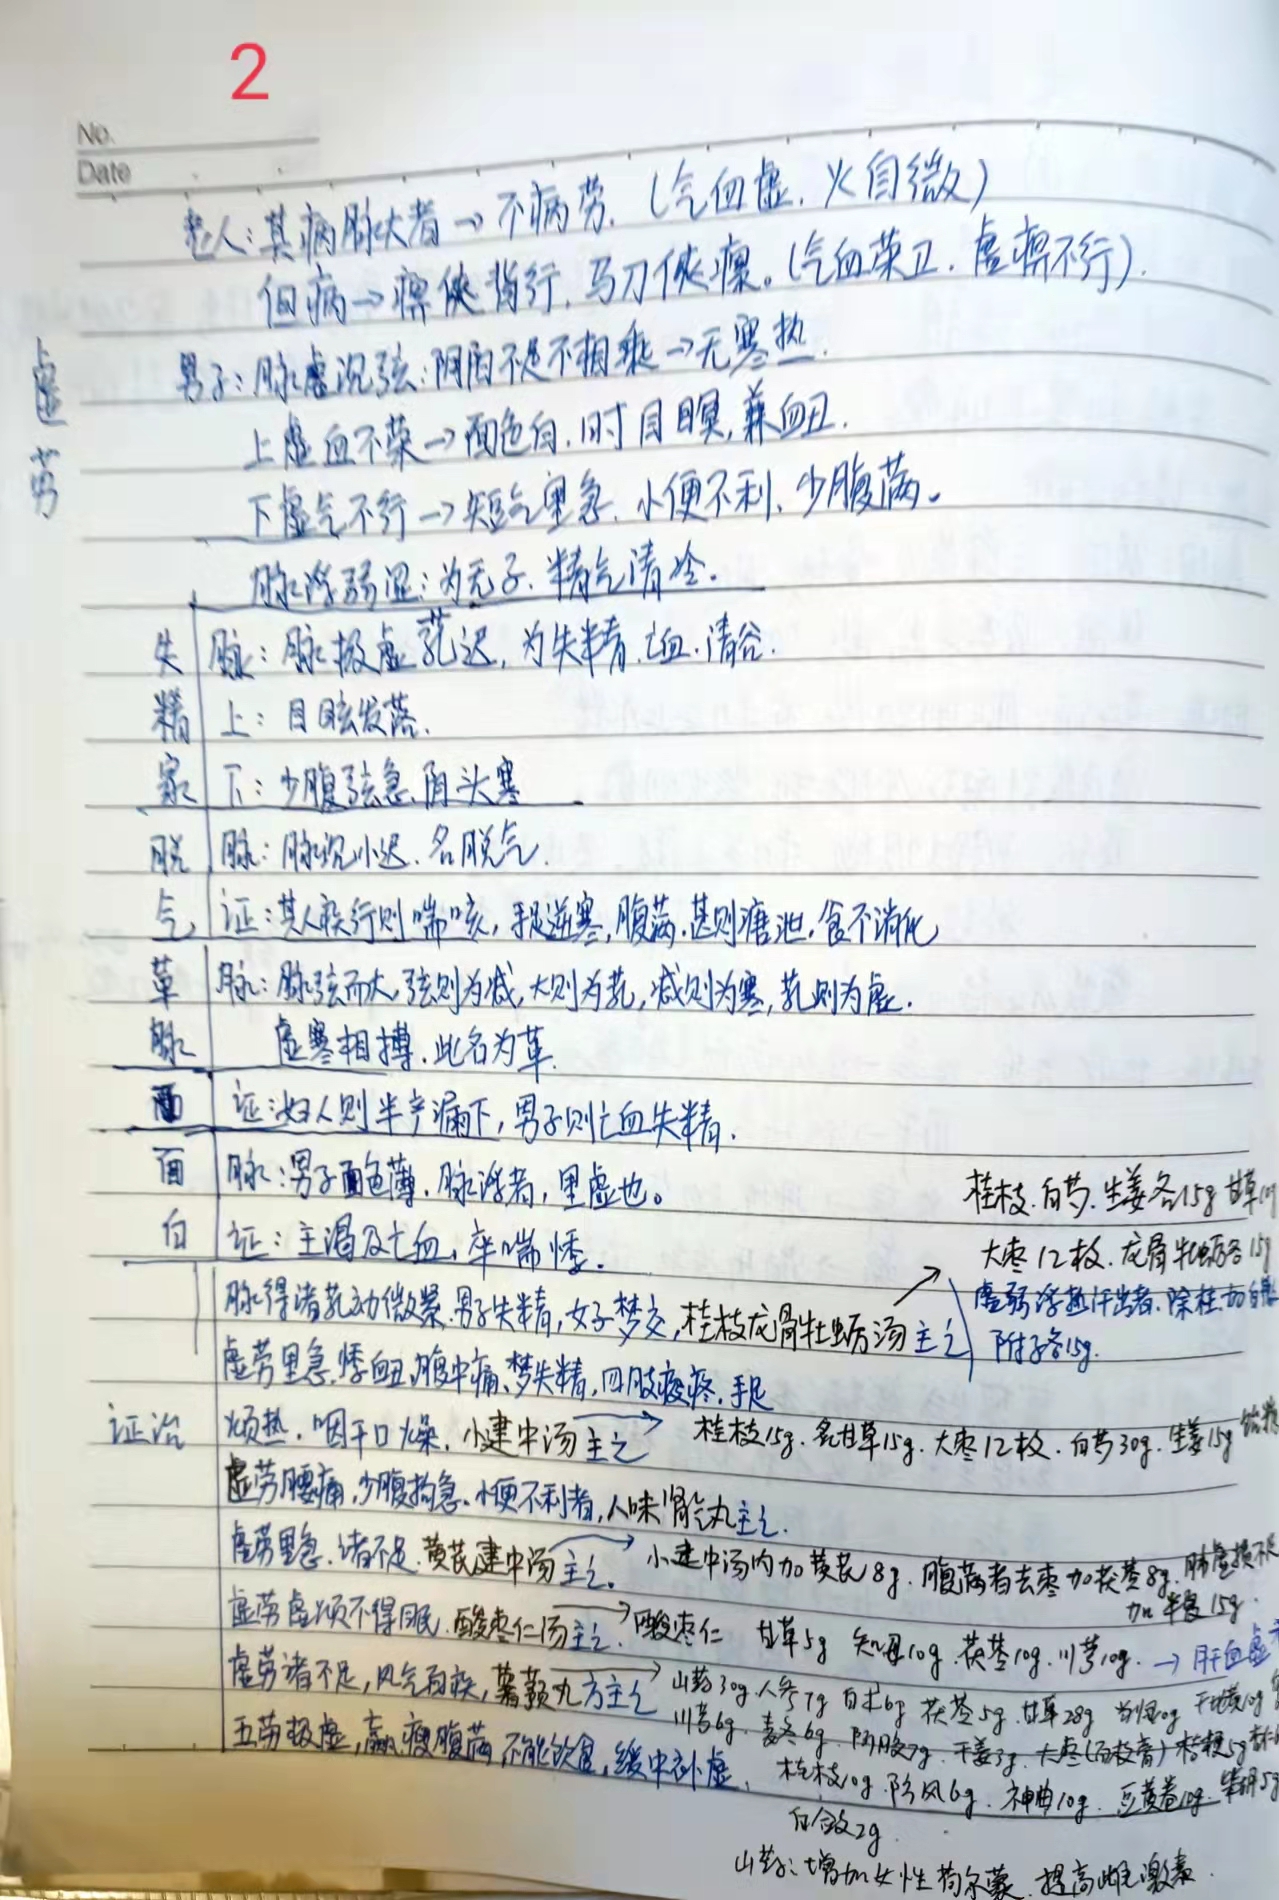 2
No.
Date
虚劳
老人:其病脉大者→不病劳.(气血虚.火自微)
但病→痹侠背行.马刀侠瘿。(气血荣卫.虚痹不行).
男子:脉虚沉弦:阴阳不足不相乘→无寒热.
上虚血不荣→面色白.时目瞑,兼衄.
下虚气不行→短气里急.小便不利、少腹满。
脉浮弱涩:为无子.精气清冷.
失精家
脉:脉极虚芤迟,为失精.亡血.清谷.
上:目眩发落.
下:少腹弦急.阴头寒
脱气
脉:脉沉小迟.名脱气.
证:其人疾行则喘咳,手足逆寒,腹满.甚则溏泄.食不消化
革脉
脉:脉弦而大,弦则为减,大则为芤,减则为寒,芤则为虚.
虚寒相搏.此名为革.
证:妇人则半产漏下,男子则亡血失精.
面白
脉:男子面色薄.脉浮者,里虚也。
证:主渴及亡血,卒喘悸。
桂枝.白芍.生姜各15g 甘草10g
大枣12枚.龙骨牡蛎各15g
虚弱浮热汗出者.除桂.加白薇
附子各15g.
证治
脉得诸芤动微紧.男子失精,女子梦交,桂枝龙骨牡蛎汤主之
虚劳里急.悸衄.腹中痛.梦失精,四肢酸疼.手足
烦热.咽干口燥.小建中汤主之→ 桂枝15g.炙甘草15g.大枣12枚.白芍30g.生姜15g
虚劳腰痛,少腹拘急.小便不利者,八味肾气丸主之.
虚劳里急.诸不足.黄芪建中汤主之。→ 小建中汤内加黄芪8g.腹满者去枣加茯苓8g.肺虚损不足
加半夏15g.
虚劳虚烦不得眠.酸枣仁汤主之.→ 酸枣仁 甘草5g 知母10g.茯苓10g.川芎10g.→肝血虚
虚劳诸不足,风气百疾,薯蓣丸方主之→ 山药30g.人参7g 白术6g 茯苓5g.甘草28g 当归10g 干地黄10g
川芎6g.麦冬6g.阿胶7g.干姜3g.大枣(百枚膏)桔梗5g
五劳极虚,羸瘦腹满不能饮食,缓中补虚. 桂枝10g.防风6g.神曲10g.豆黄卷10g.柴胡5g
白蔹2g.
山药:增加女性荷尔蒙.提高雌激素.